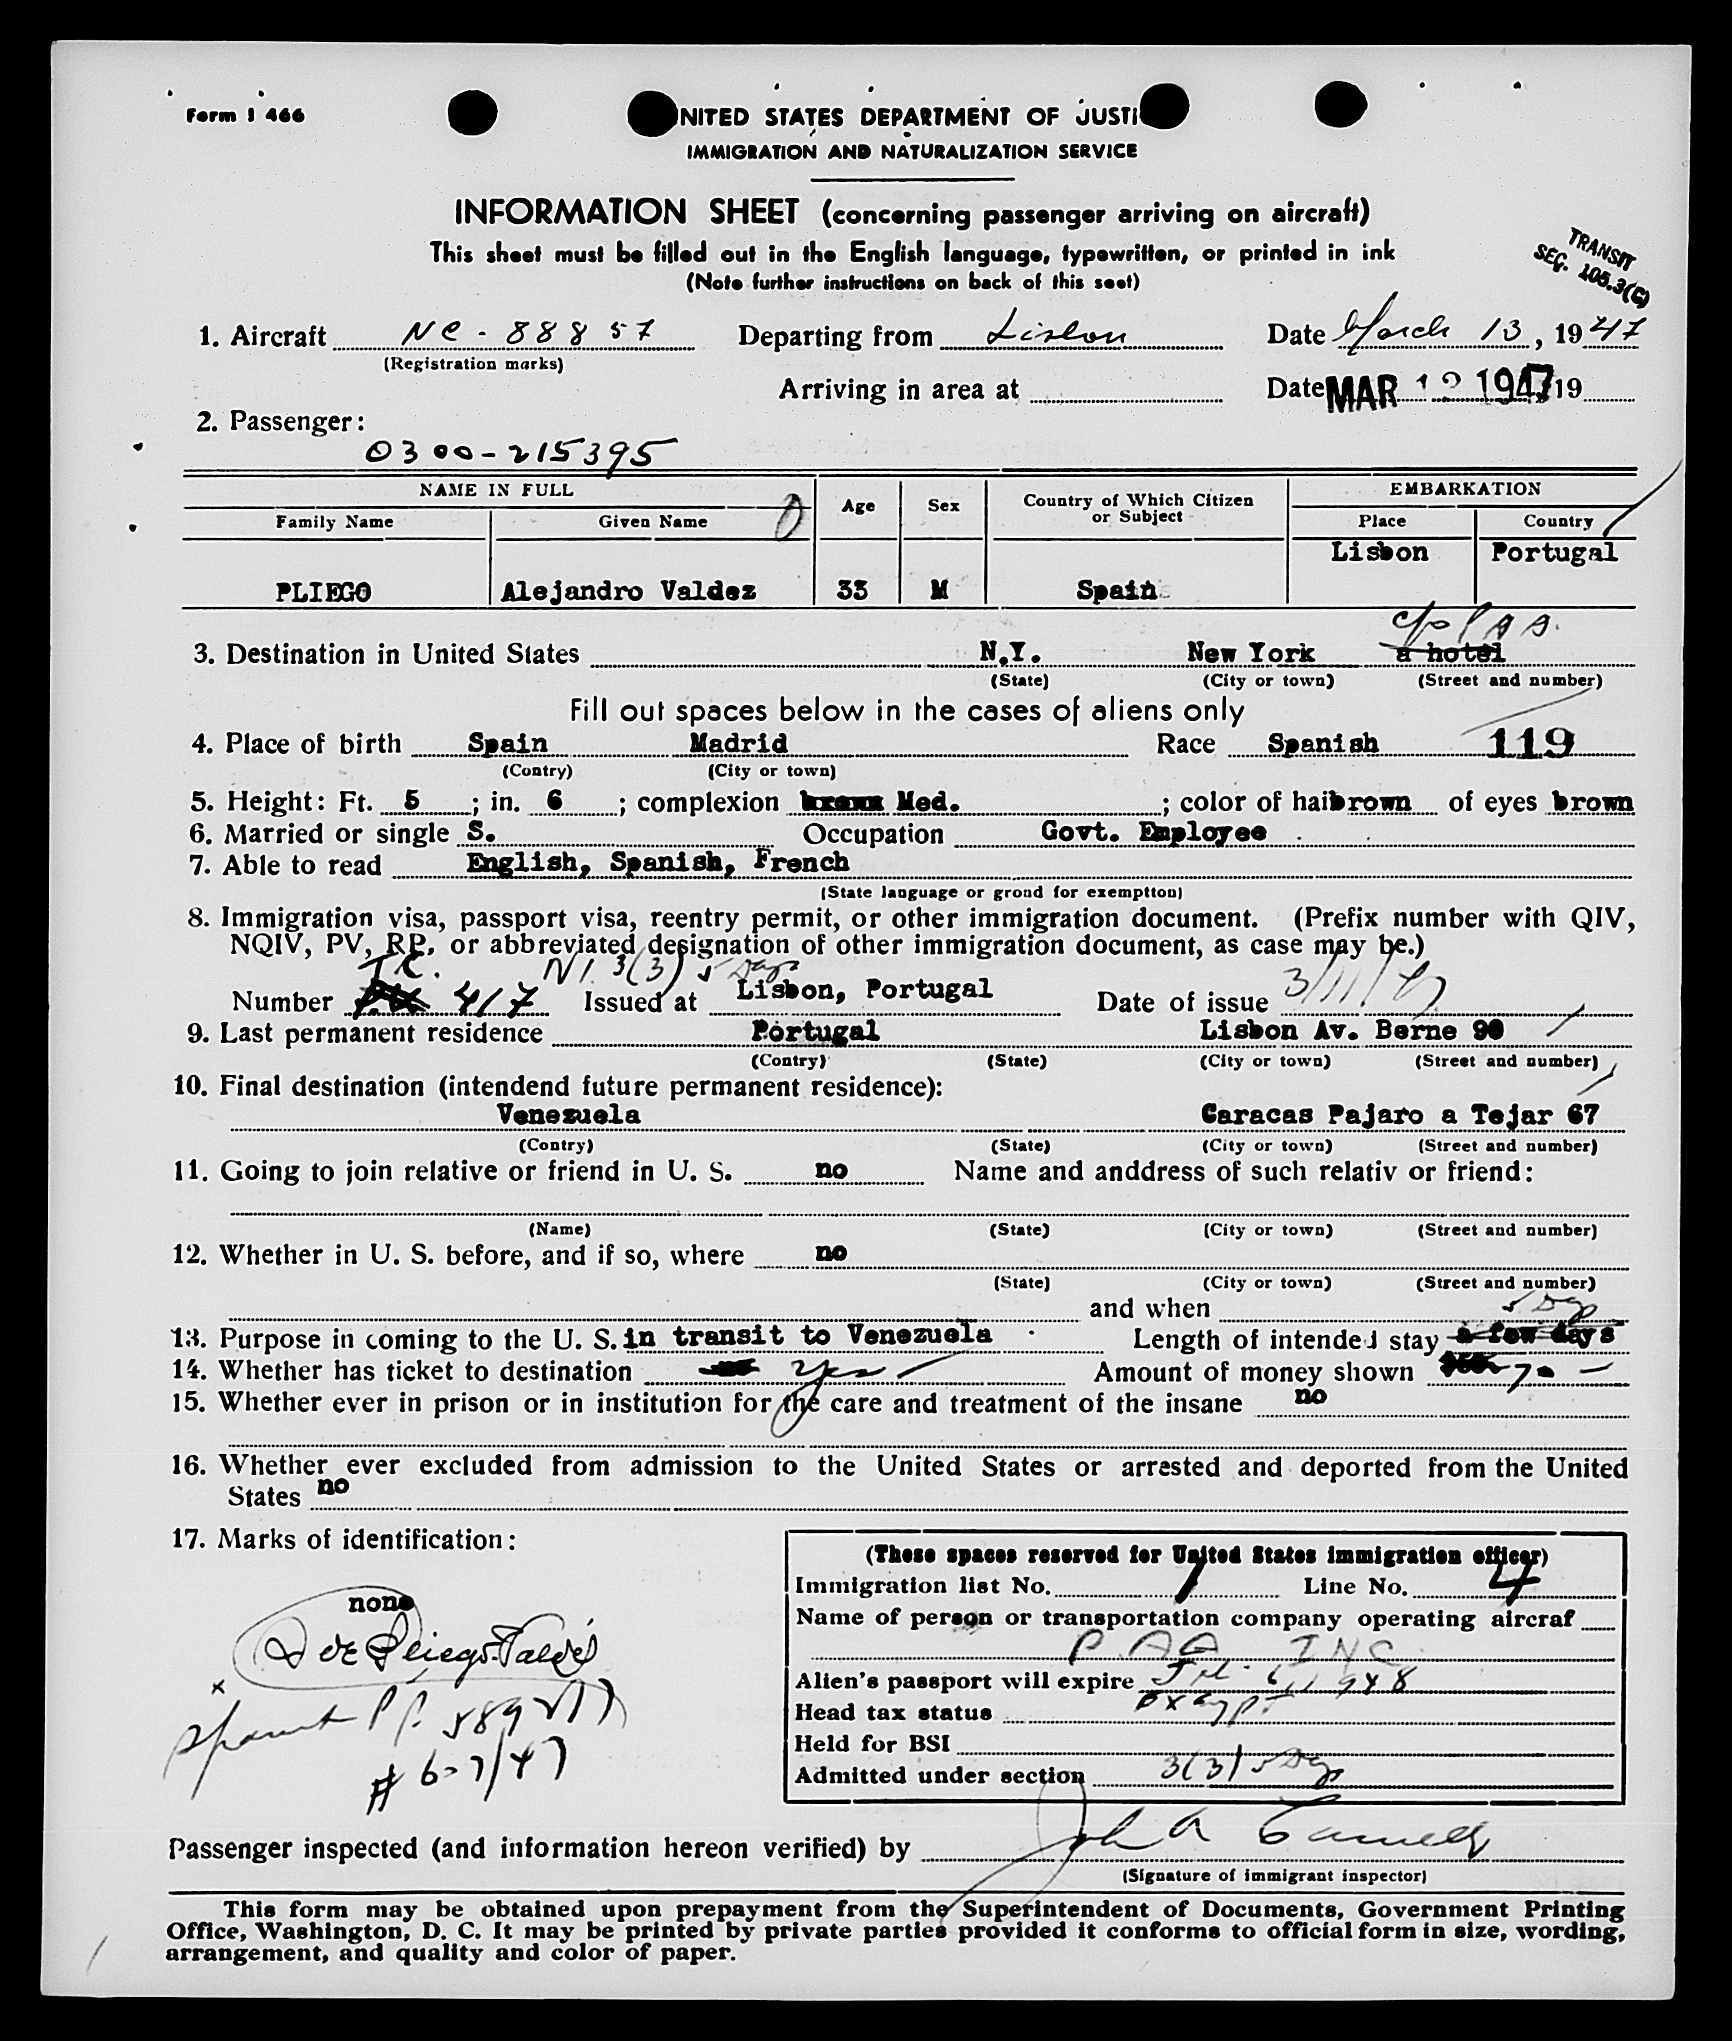 Form I 466
NITED STATES DEPARTMENT OF JUSTI
IMMIGRATION AND NATURALIZATION SERVICE
INFORMATION SHEET (concerning passenger arriving on aircraft)
This sheet must be filled out in the English language, typewritten, or printed in ink
(Note further instructions on back of this seet)
TRANSIT
SEC. 105.3(C)
1. Aircraft NC - 88857 Departing from Lisbon Date March 13, 1947
(Registration marks)
Arriving in area at Date MAR 1947 19
2. Passenger:
0300-215395
NAME IN FULL Age Sex Country of Which Citizen or Subject EMBARKATION
Family Name Given Name Place Country
Lisbon Portugal
PLIEGO Alejandro Valdez 33 M Spain
c/o PAA.
3. Destination in United States N.Y. New York a hotel
(State) (City or town) (Street and number)
Fill out spaces below in the cases of aliens only
4. Place of birth Spain Madrid Race Spanish 119
(Contry) (City or town)
5. Height: Ft. 5 ; in. 6 ; complexion Med. ; color of hai brown of eyes brown
6. Married or single S. Occupation Govt. Employee
7. Able to read English, Spanish, French
(State language or grond for exemptton)
8. Immigration visa, passport visa, reentry permit, or other immigration document. (Prefix number with QIV,
NQIV, PV, RP, or abbreviated designation of other immigration document, as case may be.)
T.C. 3(3) 5 Days
Number 417 Issued at Lisbon, Portugal Date of issue 3/11/47
9. Last permanent residence Portugal Lisbon Av. Berne 90
(Contry) (State) (City or town) (Street and number)
10. Final destination (intendend future permanent residence):
Venezuela Caracas Pajaro a Tejar 67
(Contry) (State) (City or town) (Street and number)
11. Going to join relative or friend in U. S. no Name and anddress of such relativ or friend:
(Name) (State) (City or town) (Street and number)
12. Whether in U. S. before, and if so, where no
(State) (City or town) (Street and number)
and when
5 Days
13. Purpose in coming to the U. S. in transit to Venezuela Length of intended stay a few days
14. Whether has ticket to destination yes Amount of money shown 70 -
15. Whether ever in prison or in institution for the care and treatment of the insane no
16. Whether ever excluded from admission to the United States or arrested and deported from the United
States no
17. Marks of identification:
none
x
Spanish P.P. 589
# 607/47
(These spaces reserved for United States immigration officer)
Immigration list No. 1 Line No. 4
Name of person or transportation company operating aircraf
P.AA INC.
Alien's passport will expire 1948
Head tax status Exempt
Held for BSI
Admitted under section 3(3) 5 Days
Passenger inspected (and information hereon verified) by John A
(Signature of immigrant inspector)
This form may be obtained upon prepayment from the Superintendent of Documents, Government Printing
Office, Washington, D. C. It may be printed by private parties provided it conforms to official form in size, wording,
arrangement, and quality and color of paper.